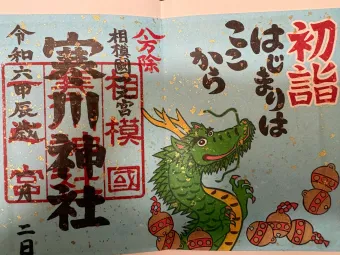 初詣
はじまりは
ここ
から
八方除
相模國一之宮
寒川神社
令和六甲辰歳
二日
相模國